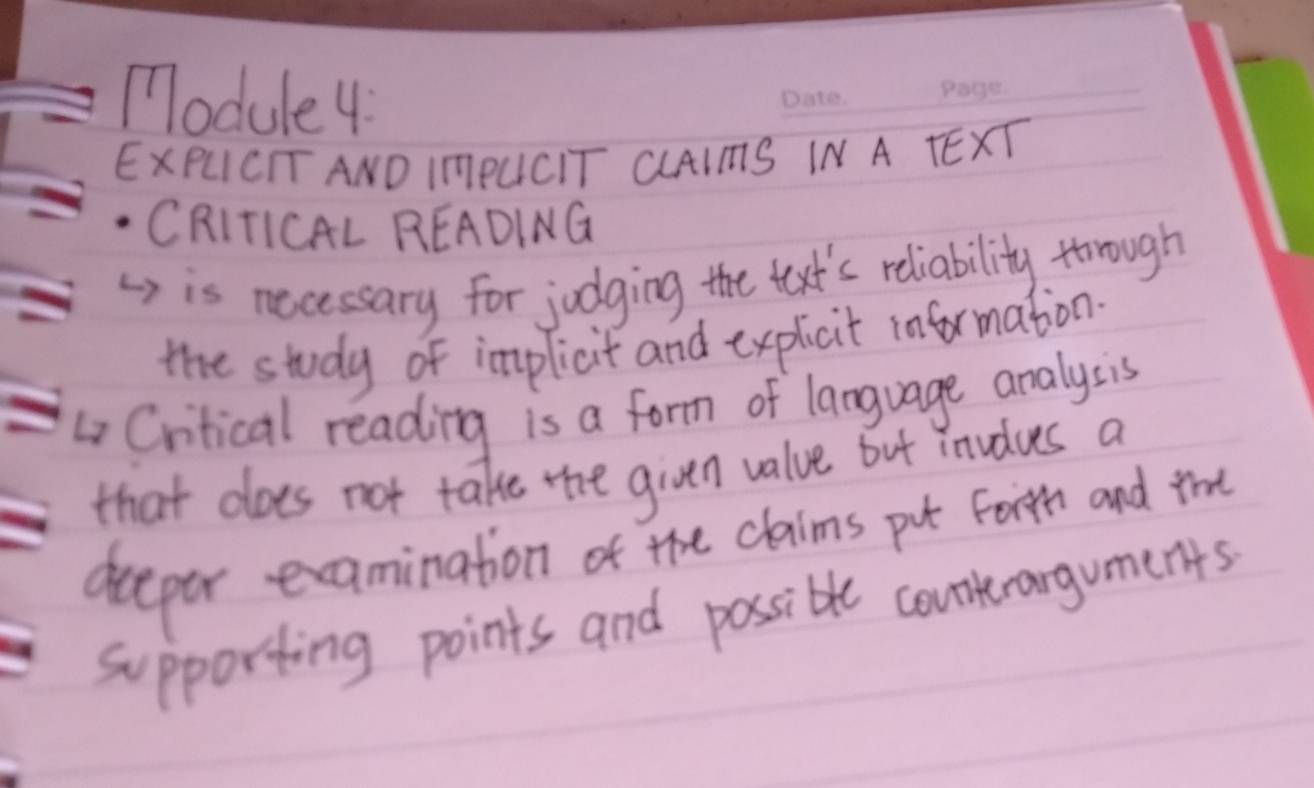 Date.
Page.
Module 4:
EXPLICIT AND IMPLICIT CLAIMS IN A TEXT
• CRITICAL READING
↳ is necessary for judging the text's reliability through
the study of implicit and explicit information.
↳ Critical reading is a form of language analysis
that does not take the given value but involves a
deeper examination of the claims put forth and the
supporting points and possible counterarguments.